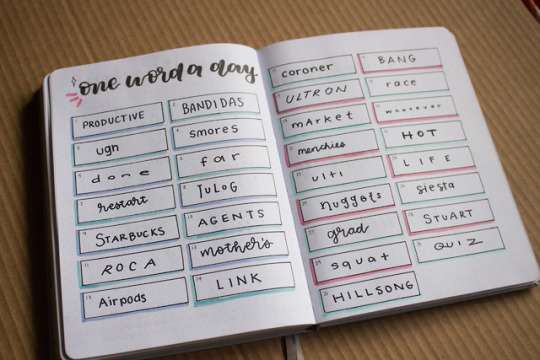 one word a day
PRODUCTIVE
BANDIDAS
ugh
smores
done
far
restart
TULOG
STARBUCKS
AGENTS
ROCA
mother's
Airpods
LINK
coroner
BANG
ULTRON
race
mArket
menchies
HOT
ulti
LIFE
nuggets
siesta
grad
STUART
squat
QUIZ
HILLSONG